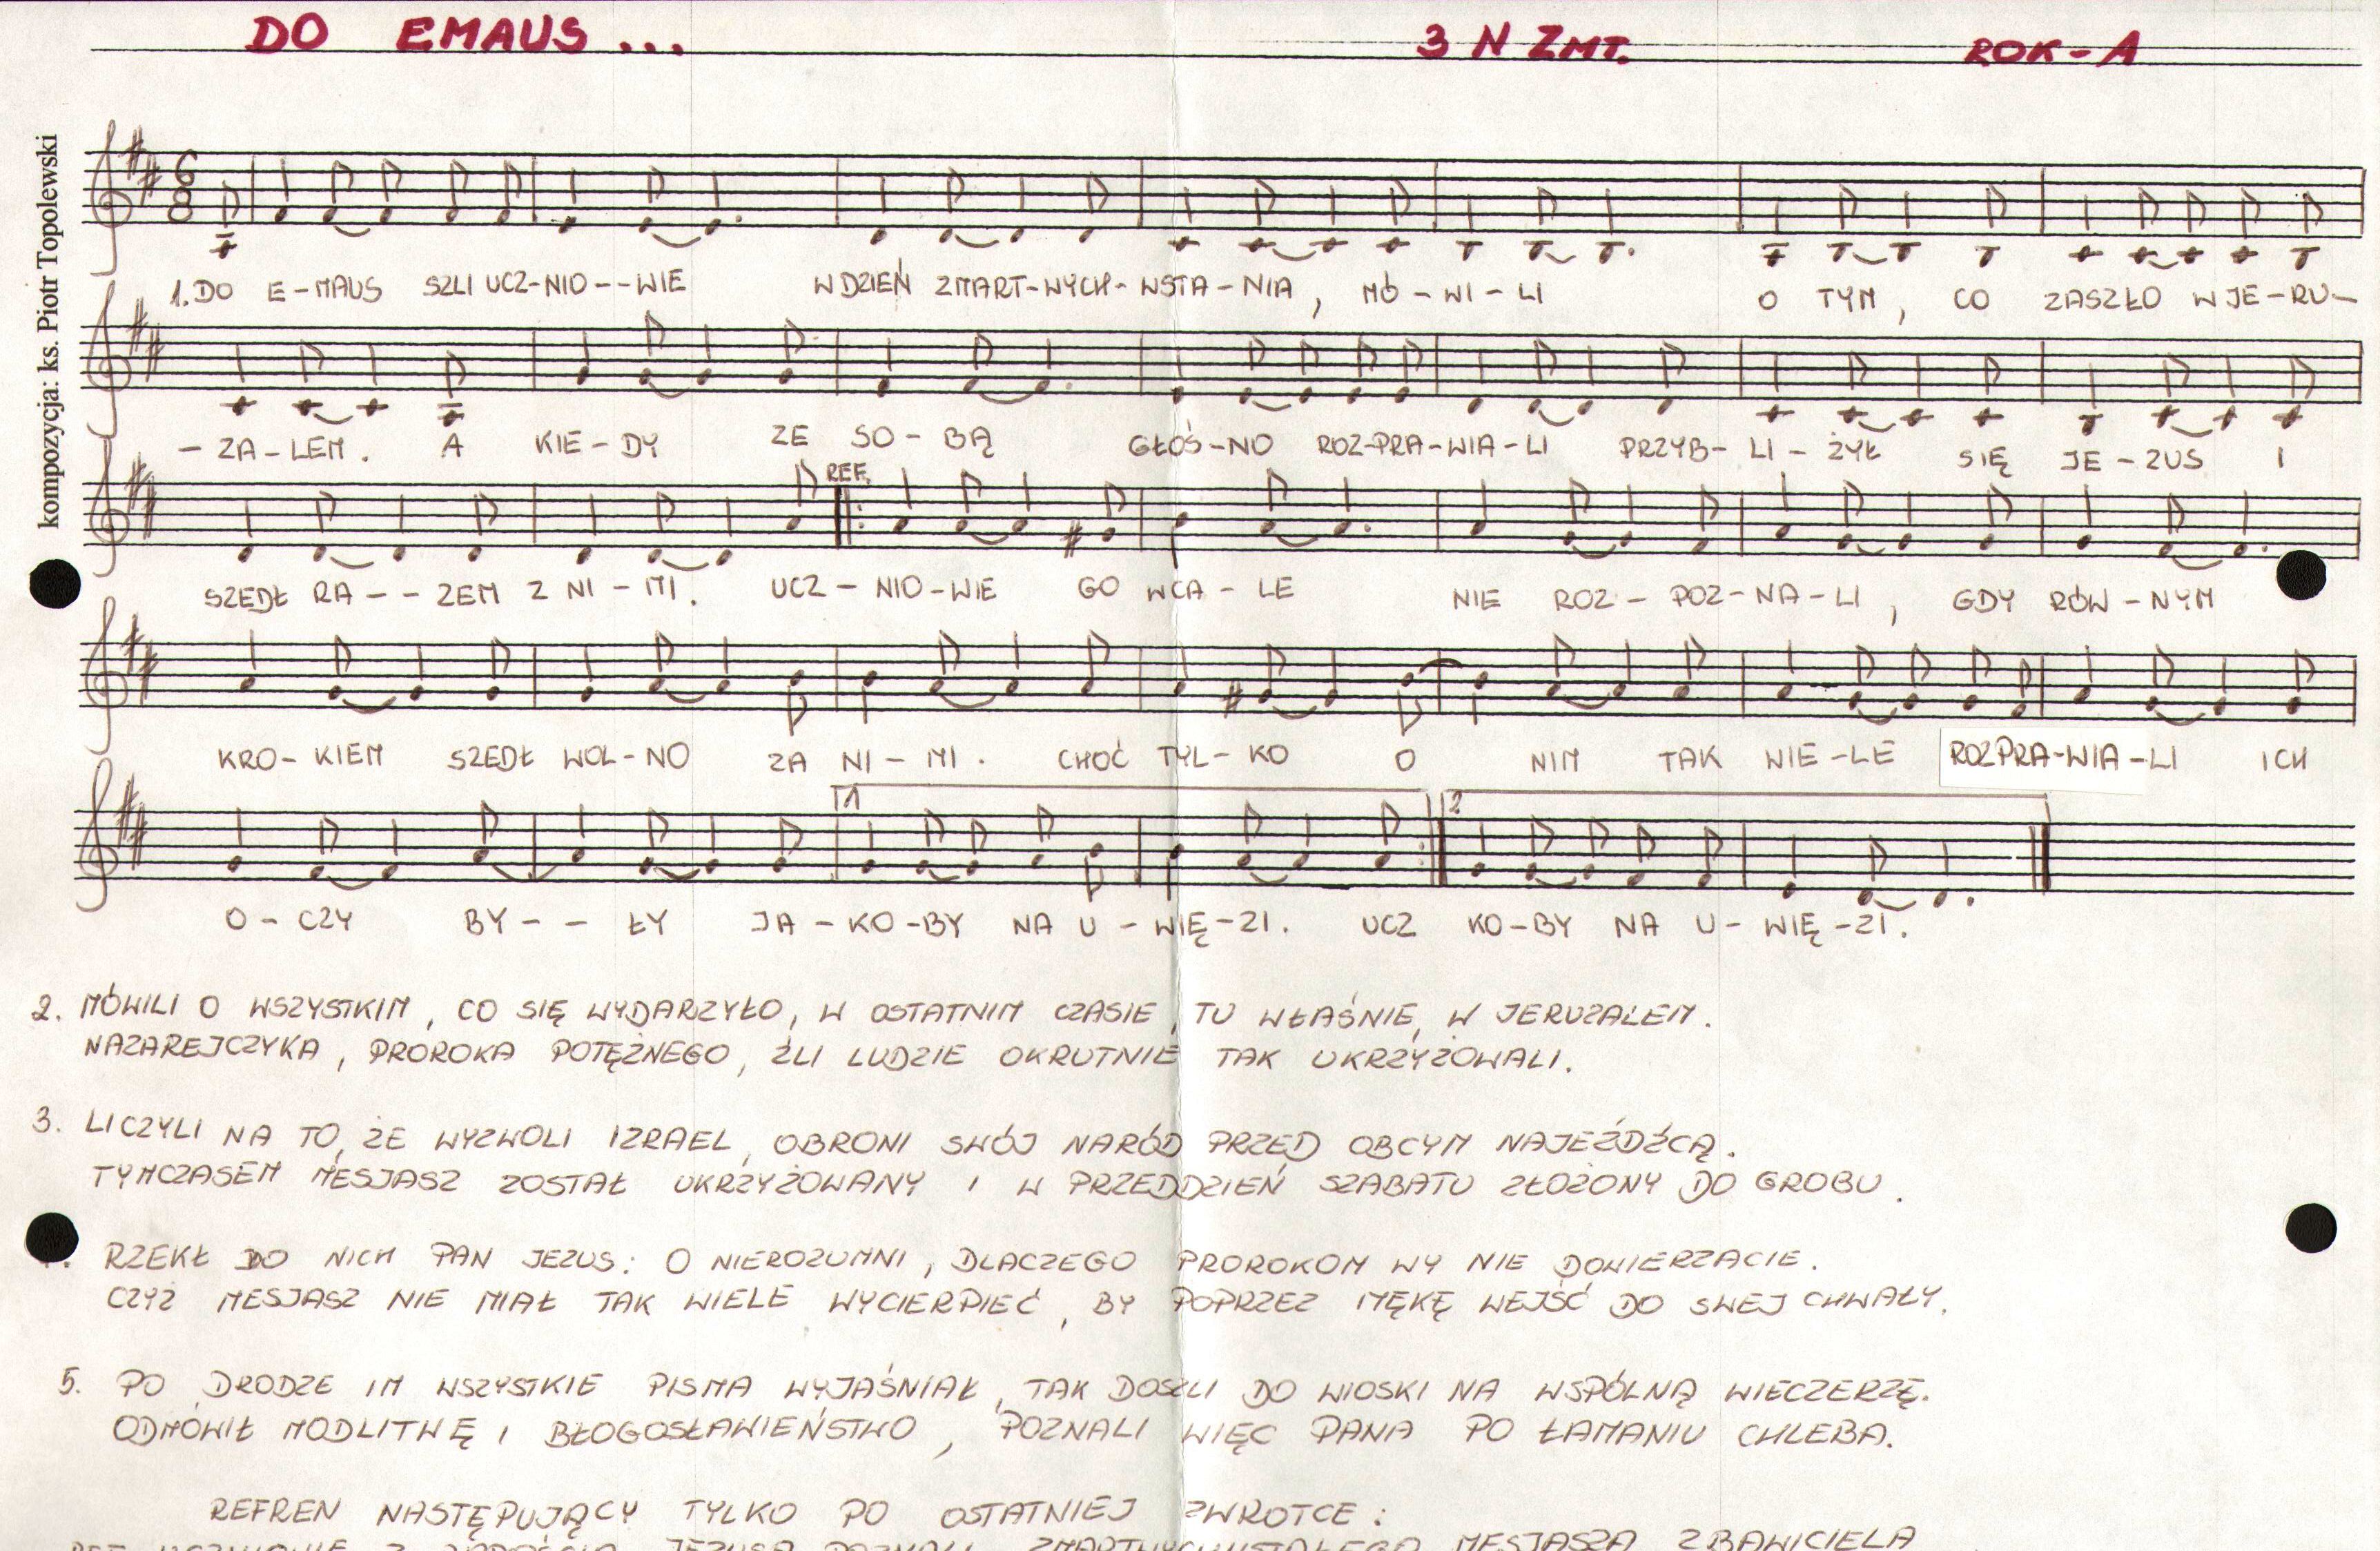 DO EMAUS ... 3 N ZMT. ROK-A
kompozycja: ks. Piotr Topolewski
6
8
1. DO E-MAUS SZLI UCZ-NIO--WIE W DZIEŃ ZMART-WYCH-WSTA-NIA, MÓ-WI-LI O TYM, CO ZASZŁO W JE-RU-
-ZA-LEM. A KIE-DY ZE SO-BĄ GŁOŚ-NO ROZ-PRA-WIA-LI PRZYB-LI-ŻYŁ SIĘ JE-ZUS I
REF.
SZEDŁ RA--ZEM Z NI-MI. UCZ-NIO-WIE GO WCA-LE NIE ROZ-POZ-NA-LI, GDY RÓW-NYM
KRO-KIEM SZEDŁ WOL-NO ZA NI-MI. CHOĆ TYL-KO O NIM TAK WIE-LE ROZPRA-WIA-LI ICH
1 2
O-CZY BY--ŁY JA-KO-BY NA U-WIĘ-ZI. UCZ KO-BY NA U-WIĘ-ZI.
2. MÓWILI O WSZYSTKIM, CO SIĘ WYDARZYŁO, W OSTATNIM CZASIE, TU WŁAŚNIE, W JERUZALEM.
NAZAREJCZYKA, PROROKA POTĘŻNEGO, ŹLI LUDZIE OKRUTNIE TAK UKRZYŻOWALI.
3. LICZYLI NA TO, ŻE WYZWOLI IZRAEL, OBRONI SWÓJ NARÓD PRZED OBCYM NAJEŹDŹCĄ.
TYMCZASEM MESJASZ ZOSTAŁ UKRZYŻOWANY I W PRZEDDZIEŃ SZABATU ZŁOŻONY DO GROBU.
RZEKŁ DO NICH PAN JEZUS: O NIEROZUMNI, DLACZEGO PROROKOM WY NIE DOWIERZACIE.
CZYŻ MESJASZ NIE MIAŁ TAK WIELE WYCIERPIEĆ, BY POPRZEZ MĘKĘ WEJŚĆ DO SWEJ CHWAŁY.
5. PO DRODZE IM WSZYSTKIE PISMA WYJAŚNIAŁ, TAK DOSZLI DO WIOSKI NA WSPÓLNĄ WIECZERZĘ.
ODMÓWIŁ MODLITWĘ I BŁOGOSŁAWIEŃSTWO, POZNALI WIĘC PANA PO ŁAMANIU CHLEBA.
REFREN NASTĘPUJĄCY TYLKO PO OSTATNIEJ ZWROTCE:
JEZUSA POZNALI ZMARTWYCHWSTAŁEGO MESJASZA ZBAWICIELA